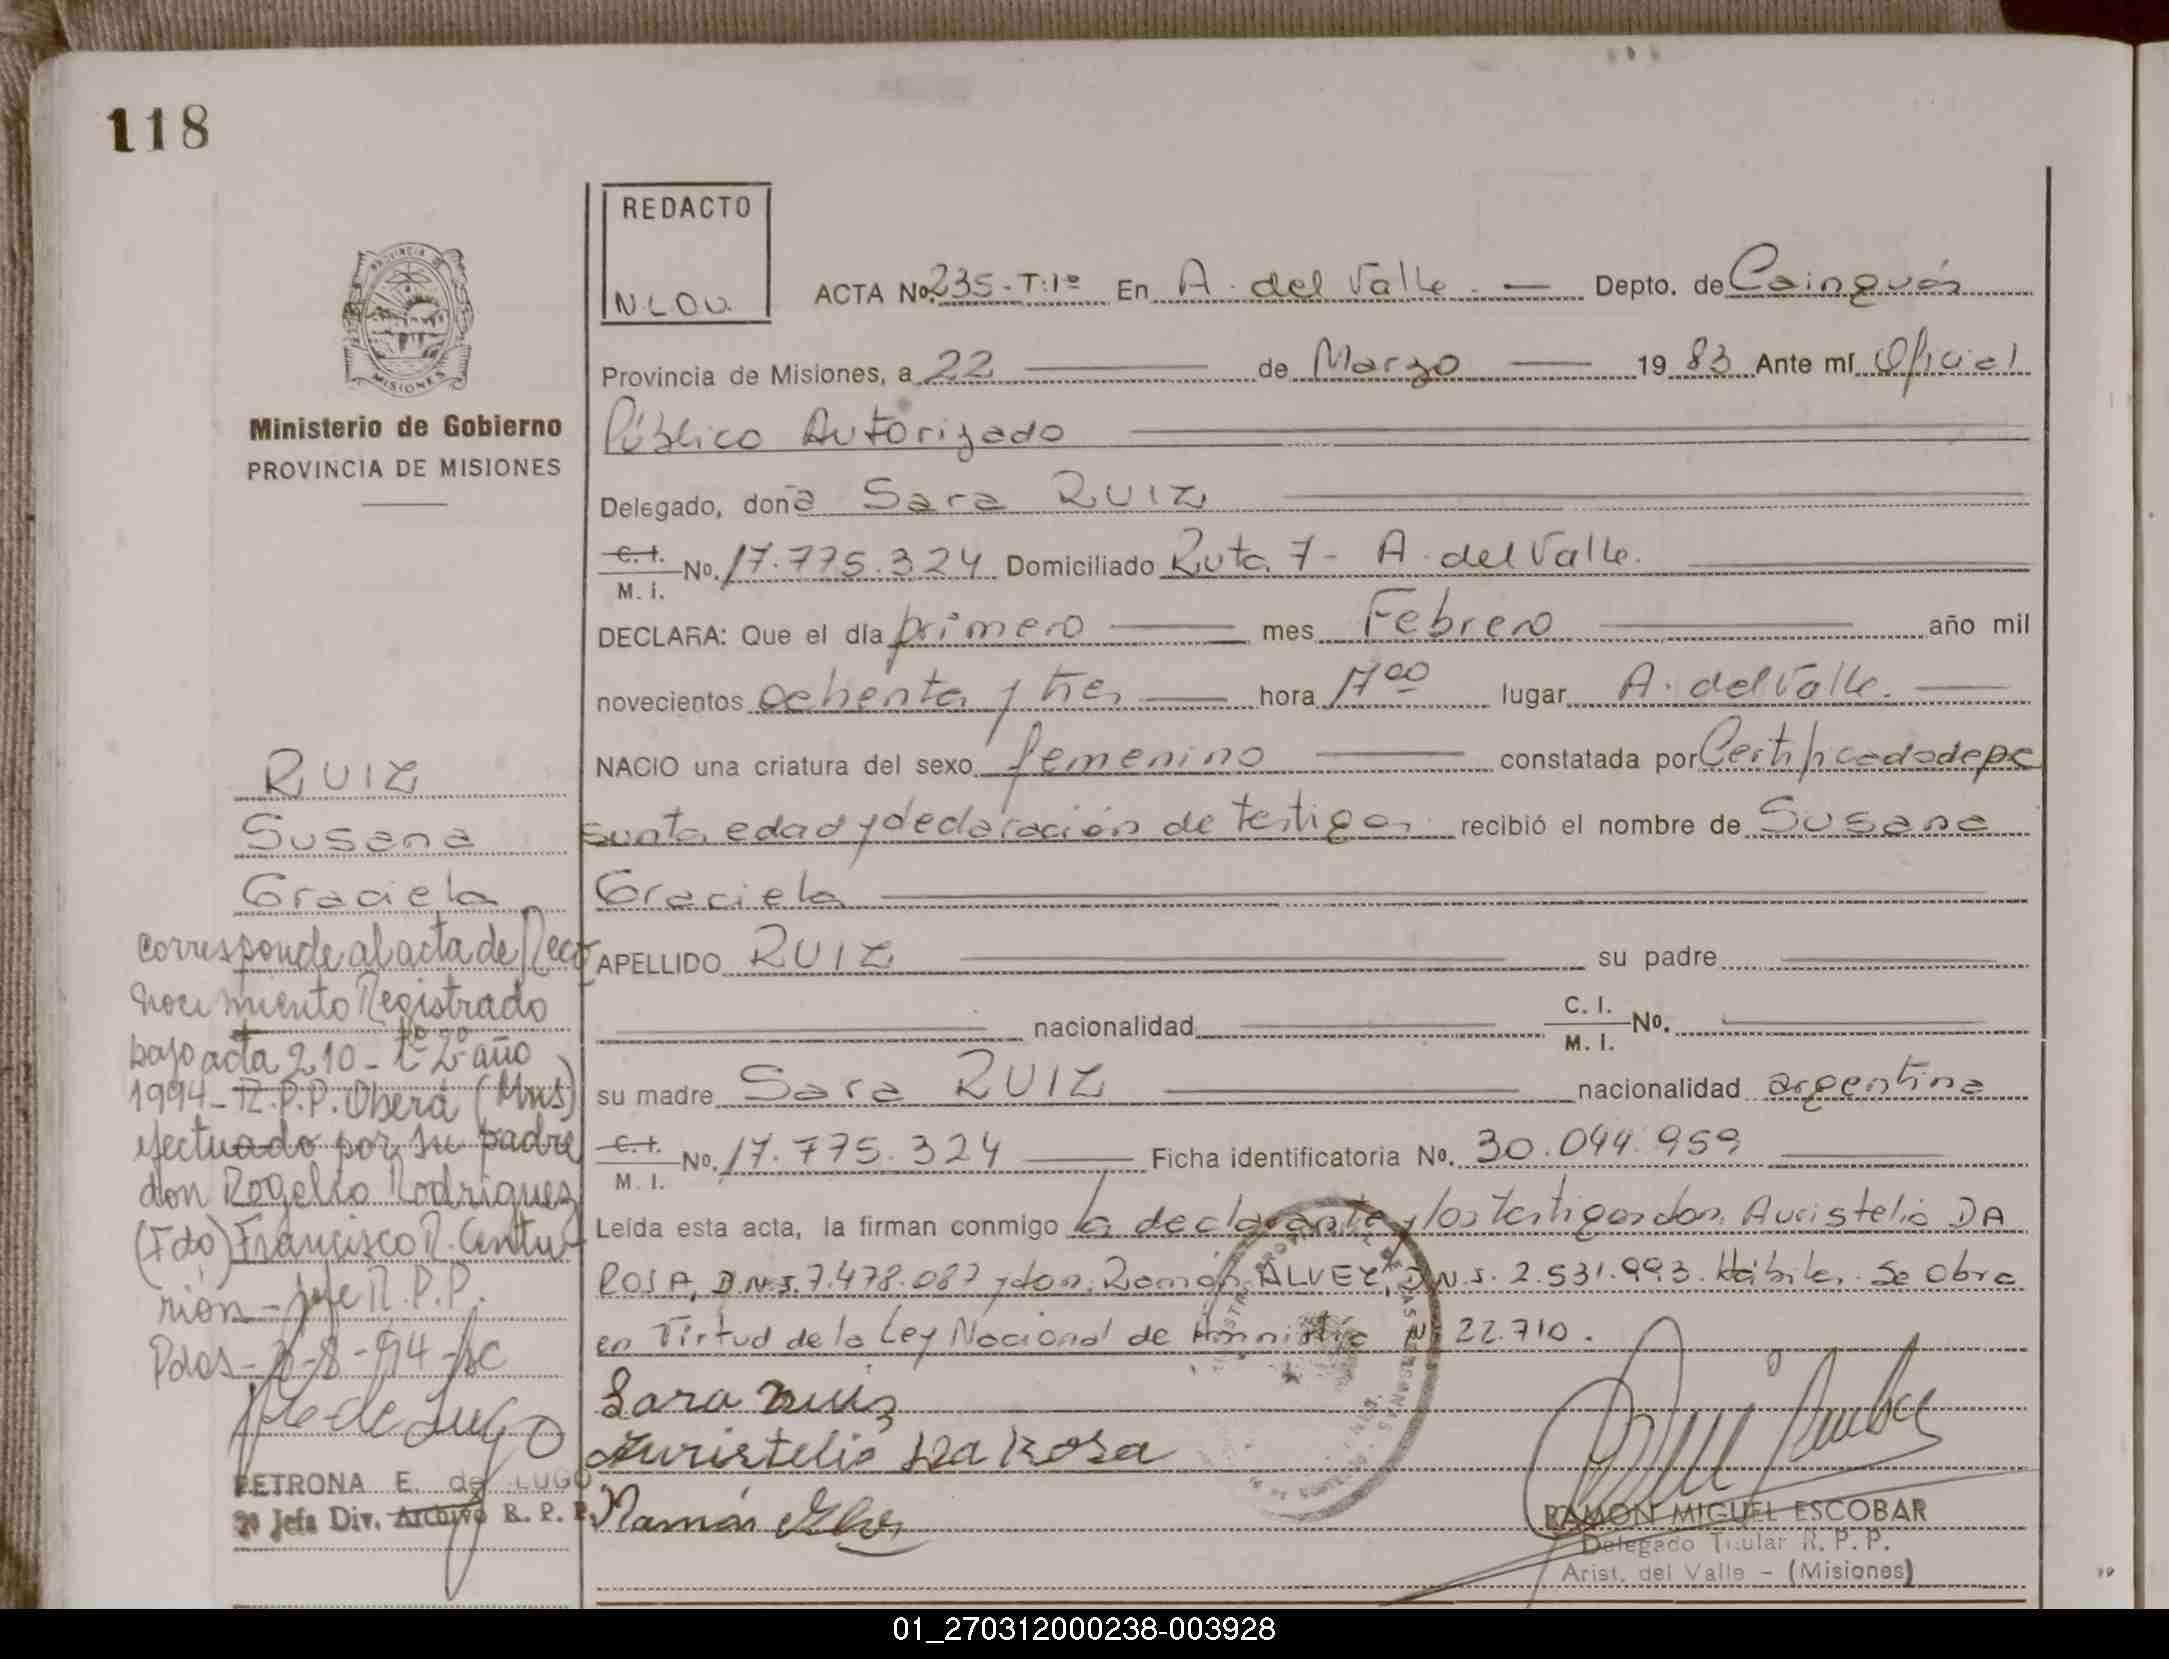 118
REDACTO
N.L.O.V.
ACTA No. 235-T:1º En A. del Valle. — Depto. de Cainguás
Provincia de Misiones, a 22 — de Marzo — 19 83 Ante mí Oficial
Público Autorizado
Delegado, doña Sara RUIZ
C. I. / M. I. No. 17.775.324 Domiciliado Ruta 7 - A. del Valle.
DECLARA: Que el día primero — mes Febrero — año mil
novecientos ochenta y tres — hora 17 00 lugar A. del Valle. —
NACIO una criatura del sexo femenino — constatada por Certificado de pre
sunta edad y declaración de testigos recibió el nombre de Susana
Graciela
APELLIDO RUIZ — su padre —
— nacionalidad — C. I. / M. I. No. —
su madre Sara RUIZ — nacionalidad argentina
C. I. / M. I. No. 17.775.324 — Ficha identificatoria No. 30.044.959 —
Leída esta acta, la firman conmigo la declarante y los testigos don Auristelio DA
ROSA, D.N.I. 7.478.087 y don Ramón ALVEZ, D.N.I. 2.531.993. Hábiles. Se obra
en Virtud de la Ley Nacional de Amnistía Nº 22.710.
Sara Ruiz
Auristelio Da Rosa
Ramón
RAMON MIGUEL ESCOBAR
Delegado Titular R. P. P.
Arist. del Valle - (Misiones)
PROVINCIA DE
MISIONES
Ministerio de Gobierno
PROVINCIA DE MISIONES
RUIZ
Susana
Graciela
Corresponde al acta de Reco
nocimiento Registrado
bajo acta 210 - tº 2º año
1994 - R.P.P. Oberá (Mns)
efectuado por su padre
don Rogelio Rodriguez
(Fdo) Francisco R. Centu-
rión - jefe R.P.P.
Pdas - -8-94 -
de Lugo
PETRONA E. de LUGO
2º Jefa Div. Archivo R. P. P.
01_270312000238-003928